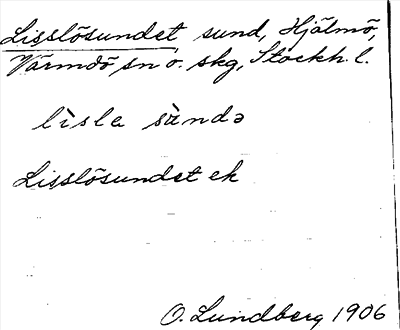 Lisslösundet, sund, Hjälmö,
Värmdö sn o. skg, Stockh. l.
lìsle sùndə
Lisslösundet ek
O. Lundberg 1906